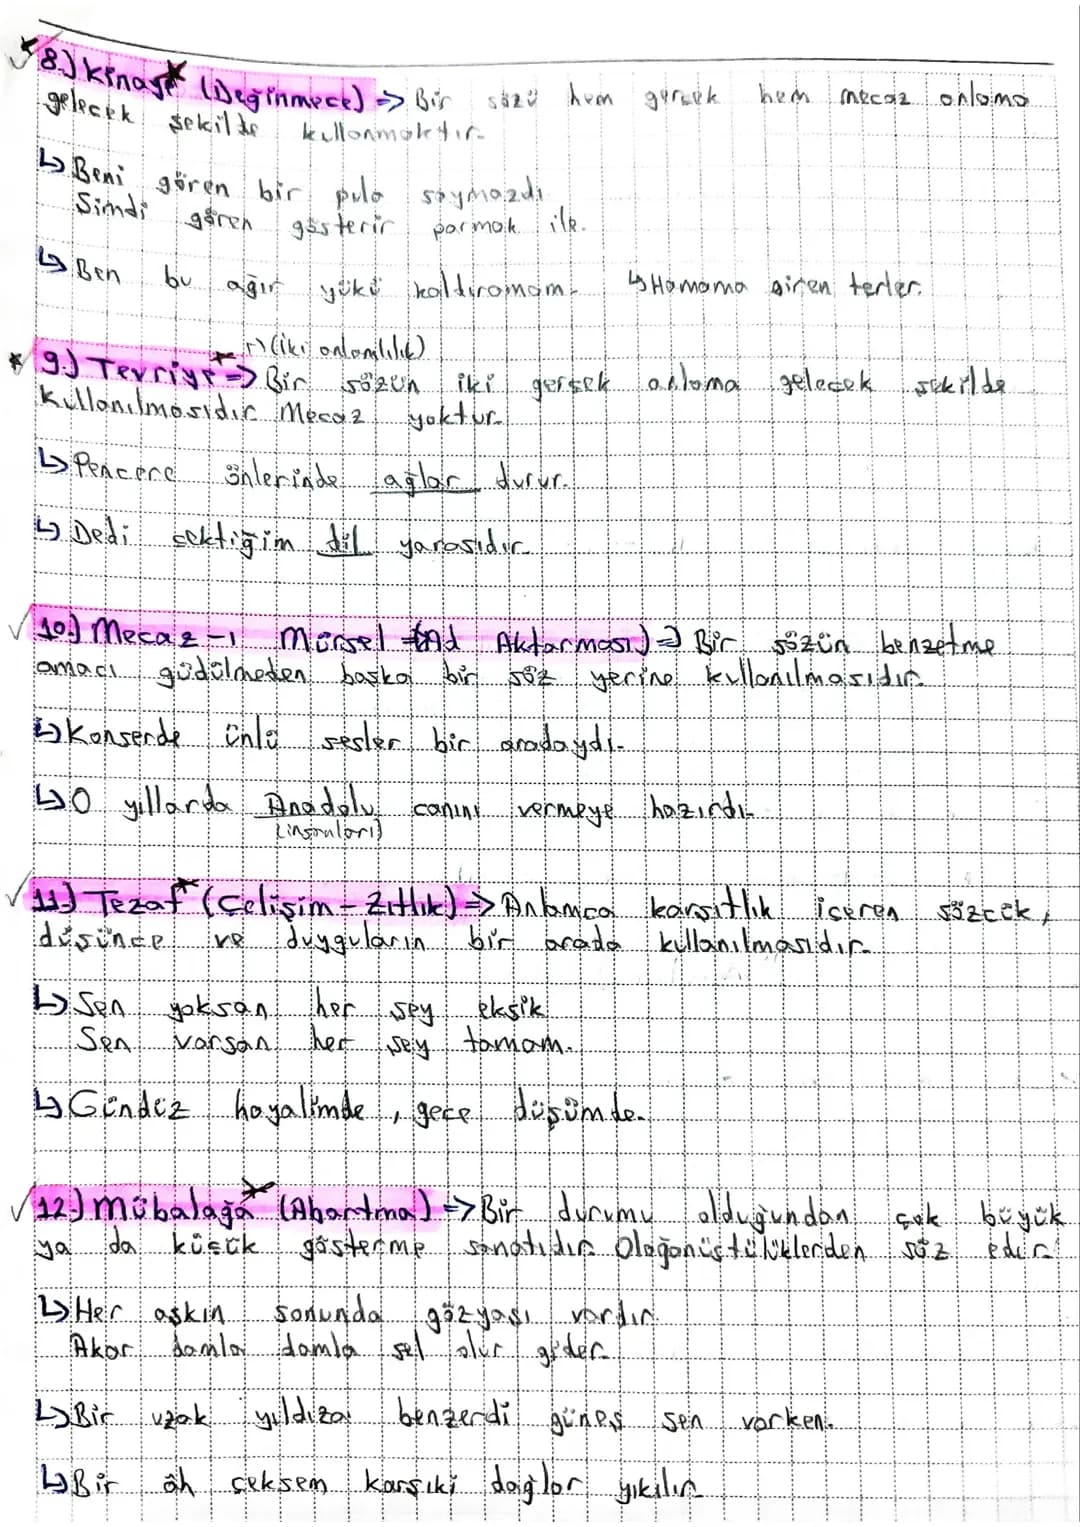 8.) Kinaye (Değinmece) => Bir sözü hem gerçek hem mecaz anlama
gelecek şekilde kullanmaktır.
↳ Beni gören bir pula saymazdı
Şimdi gören gösterir parmak ile.
↳ Ben bu ağır yükü kaldıramam. ↳ Hamama giren terler.
(iki anlamlılık)
9.) Tevriye => Bir sözün iki gerçek anlama gelecek şekilde
kullanılmasıdır. Mecaz yoktur.
↳ Pencere önlerinde ağlar durur.
↳ Dedi çektiğim dil yarasıdır.
10.) Mecaz-ı Mürsel (Ad Aktarması) => Bir sözün benzetme
amacı güdülmeden başka bir söz yerine kullanılmasıdır.
↳ Konserde ünlü sesler bir aradaydı.
↳ O yıllarda Anadolu canını vermeye hazırdı.
(insanları)
11.) Tezat (Çelişim - Zıtlık) => Anlamca karşıtlık içeren sözcük,
düşünce ve duyguların bir arada kullanılmasıdır.
↳ Sen yoksan her şey eksik
Sen varsan her şey tamam.
↳ Gündüz hayalimde, gece düşümde.
12.) Mübalağa (Abartma) => Bir durumu olduğundan çok büyük
ya da küçük gösterme sanatıdır. Olağanüstülüklerden söz edir.
↳ Her aşkın sonunda gözyaşı vardır.
Akar damla damla sel olur gider.
↳ Bir uzak yıldıza benzerdi güneş sen varken.
↳ Bir âh çeksem karşıki dağlar yıkılır.